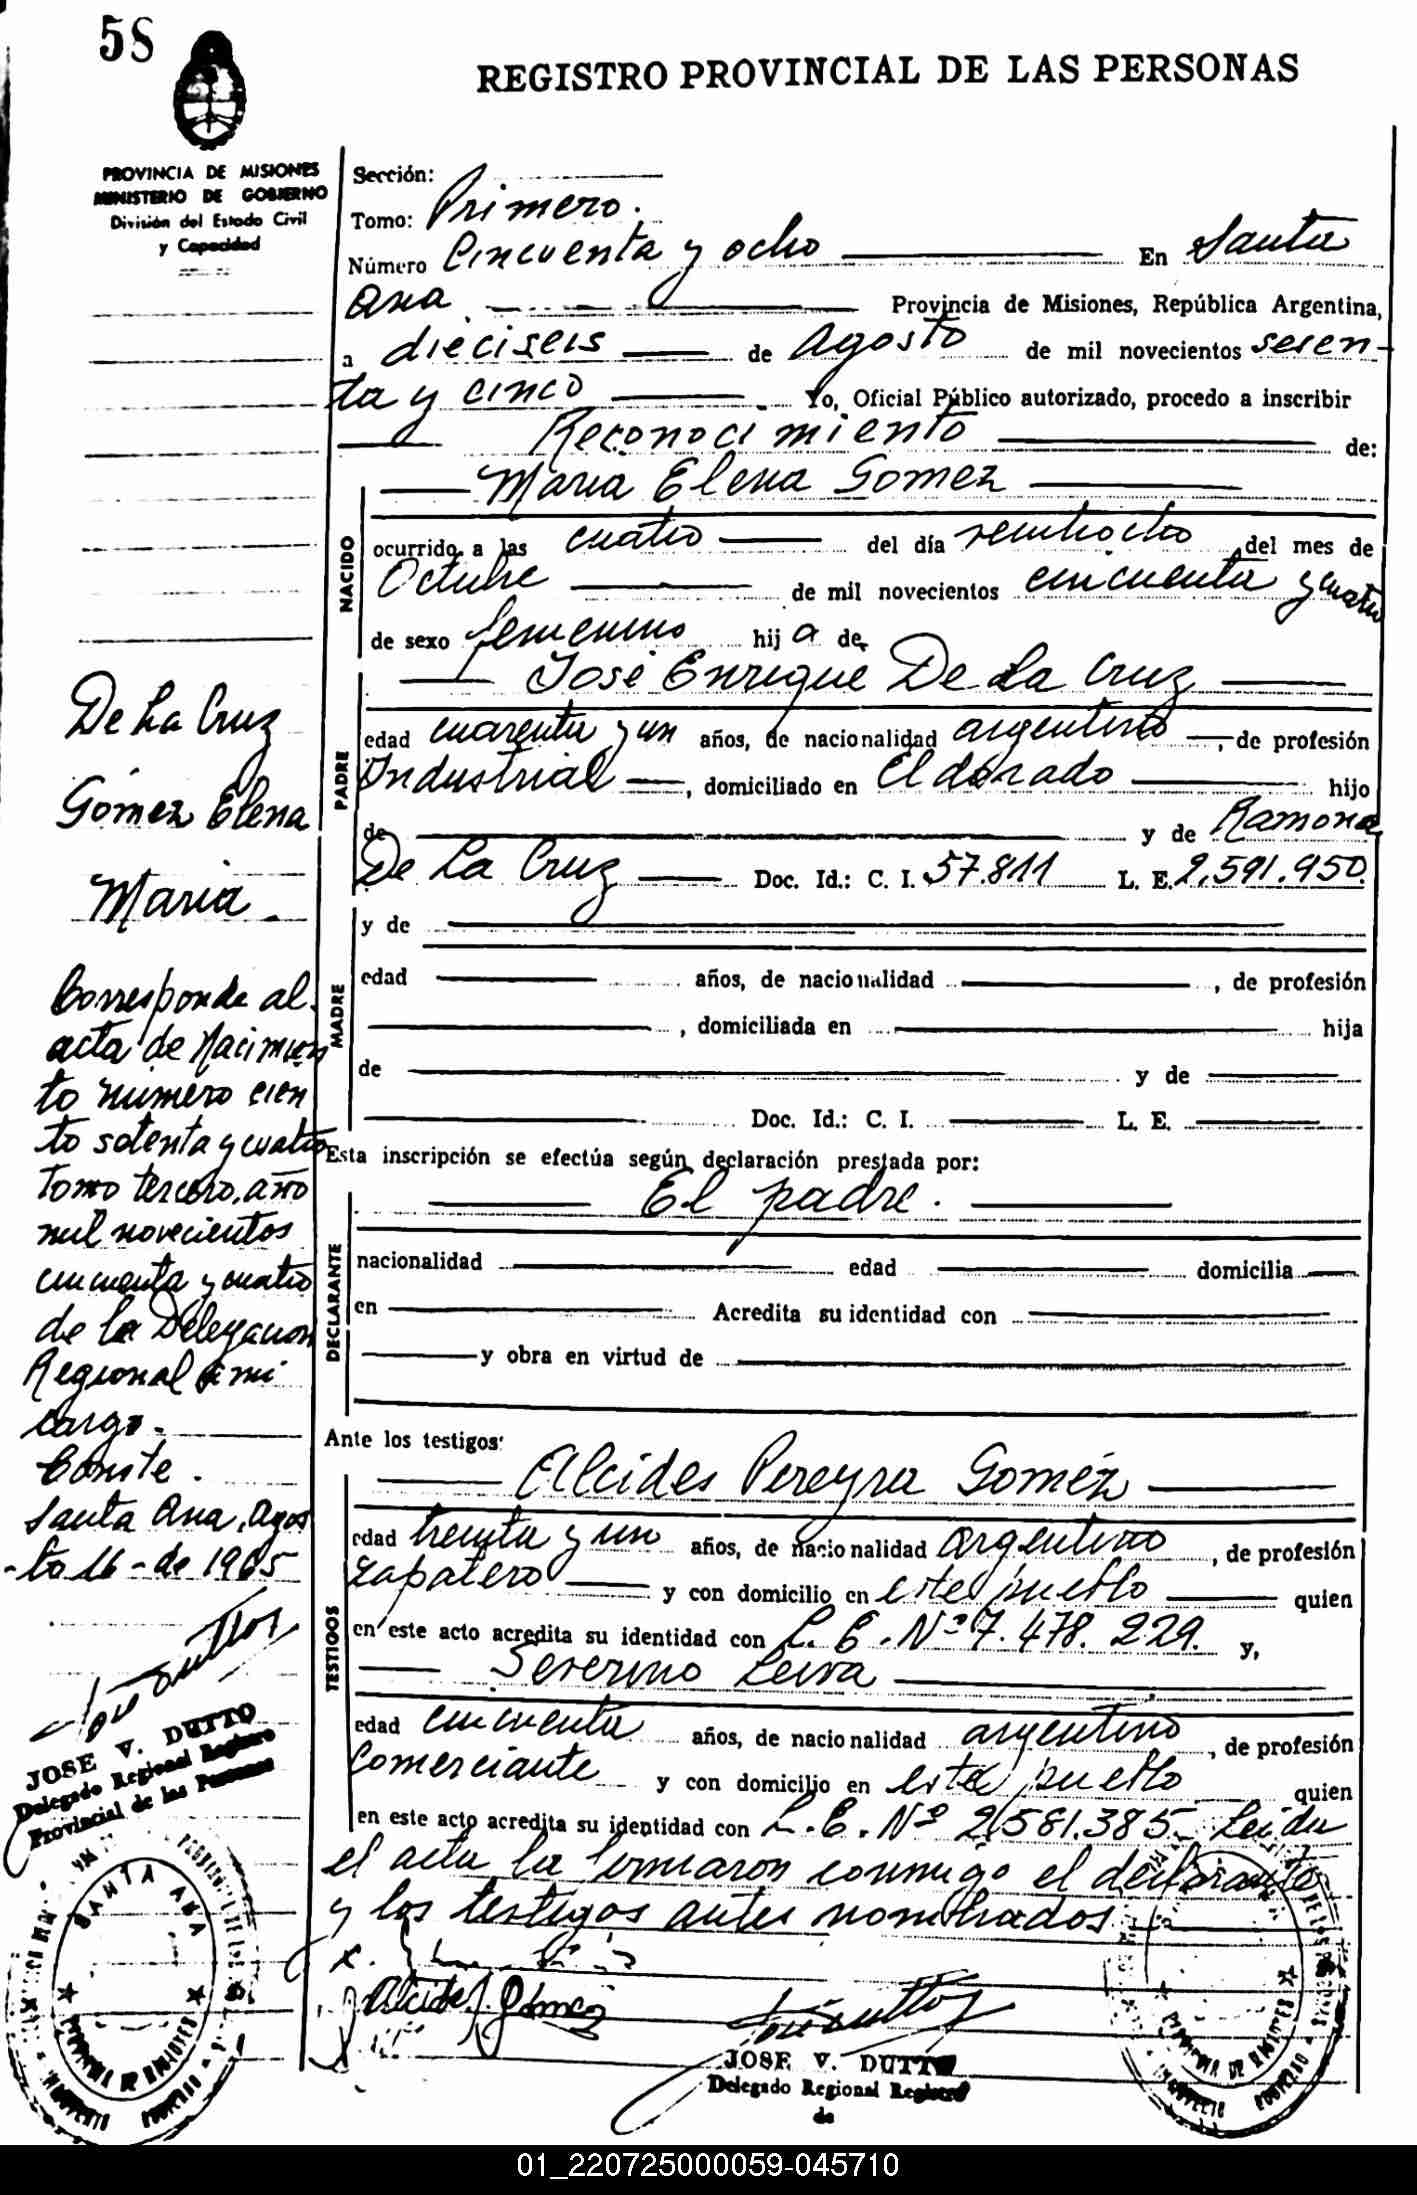 58
REGISTRO PROVINCIAL DE LAS PERSONAS
PROVINCIA DE MISIONES
MINISTERIO DE GOBIERNO
División del Estado Civil
y Capacidad
Sección:
Tomo: Primero.
Número Cincuenta y ocho En Santa
Ana Provincia de Misiones, República Argentina,
a dieciseis de Agosto de mil novecientos sesen-
ta y cinco Yo, Oficial Público autorizado, procedo a inscribir
Reconocimiento de:
Maria Elena Gomez
NACIDO
ocurrido a las cuatro del día veintiocho del mes de
Octubre de mil novecientos cincuenta y cuatro
de sexo femenino hij a de
José Enrique De La Cruz
PADRE
edad cuarenta y un años, de nacionalidad argentino, de profesión
Industrial, domiciliado en Eldorado hijo
de y de Ramona
De La Cruz Doc. Id.: C. I. 57.811 L. E. 2.591.950.
MADRE
y de
edad años, de nacionalidad , de profesión
, domiciliada en hija
de y de
Doc. Id.: C. I. L. E.
Esta inscripción se efectúa según declaración prestada por:
El padre.
DECLARANTE
nacionalidad edad domicilia
en Acredita su identidad con
y obra en virtud de
Ante los testigos:
Alcides Pereyra Goméz
TESTIGOS
edad treinta y un años, de nacionalidad argentino, de profesión
zapatero y con domicilio en este pueblo quien
en este acto acredita su identidad con L. E. Nº 7.478.229. y,
Severino Leiva
edad cincuenta años, de nacionalidad argentino, de profesión
Comerciante y con domicilio en este pueblo quien
en este acto acredita su identidad con L. E. Nº 2.581.385. Leida
el acta la firmaron conmigo el declarante
y los testigos antes nombrados.
Alcides P Gómez
JOSE V. DUTTO
Delegado Regional Registro
de
De La Cruz
Gómez Elena
Maria
Corresponde al
acta de Nacimien
to número cien
to setenta y cuatro
Tomo tercero, año
mil novecientos
cincuenta y cuatro
de la Delegacion
Regional a mi
cargo.
Conste.
Santa Ana, Agos
-to 16 - de 1965
JOSE V. DUTTO
Delegado Regional Registro
Provincial de las Personas
SANTA ANA
PROVINCIA DE MISIONES
01_220725000059-045710